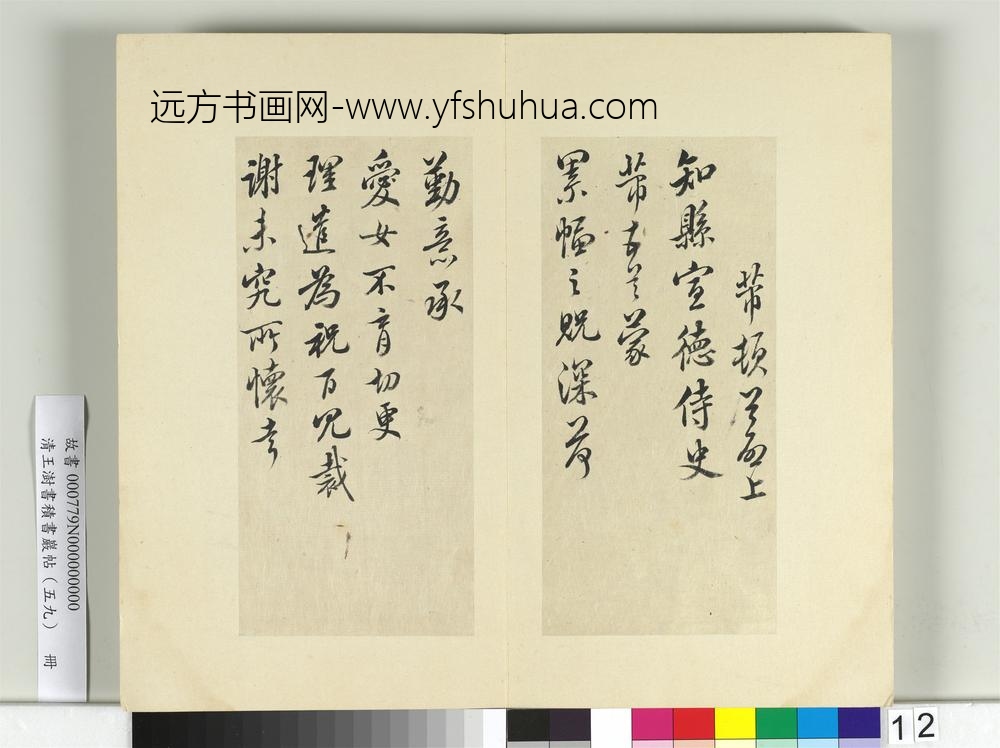 远方书画网-www.yfshuhua.com
芾頓首再上
知縣宣德侍史
芾去蒙
累幅之貺深荷
勤意承
愛女不育切更
理遣為祝百冗裁
謝未究所懷
故書000779N000000000
清王澍書積書巖帖（五九） 冊
12